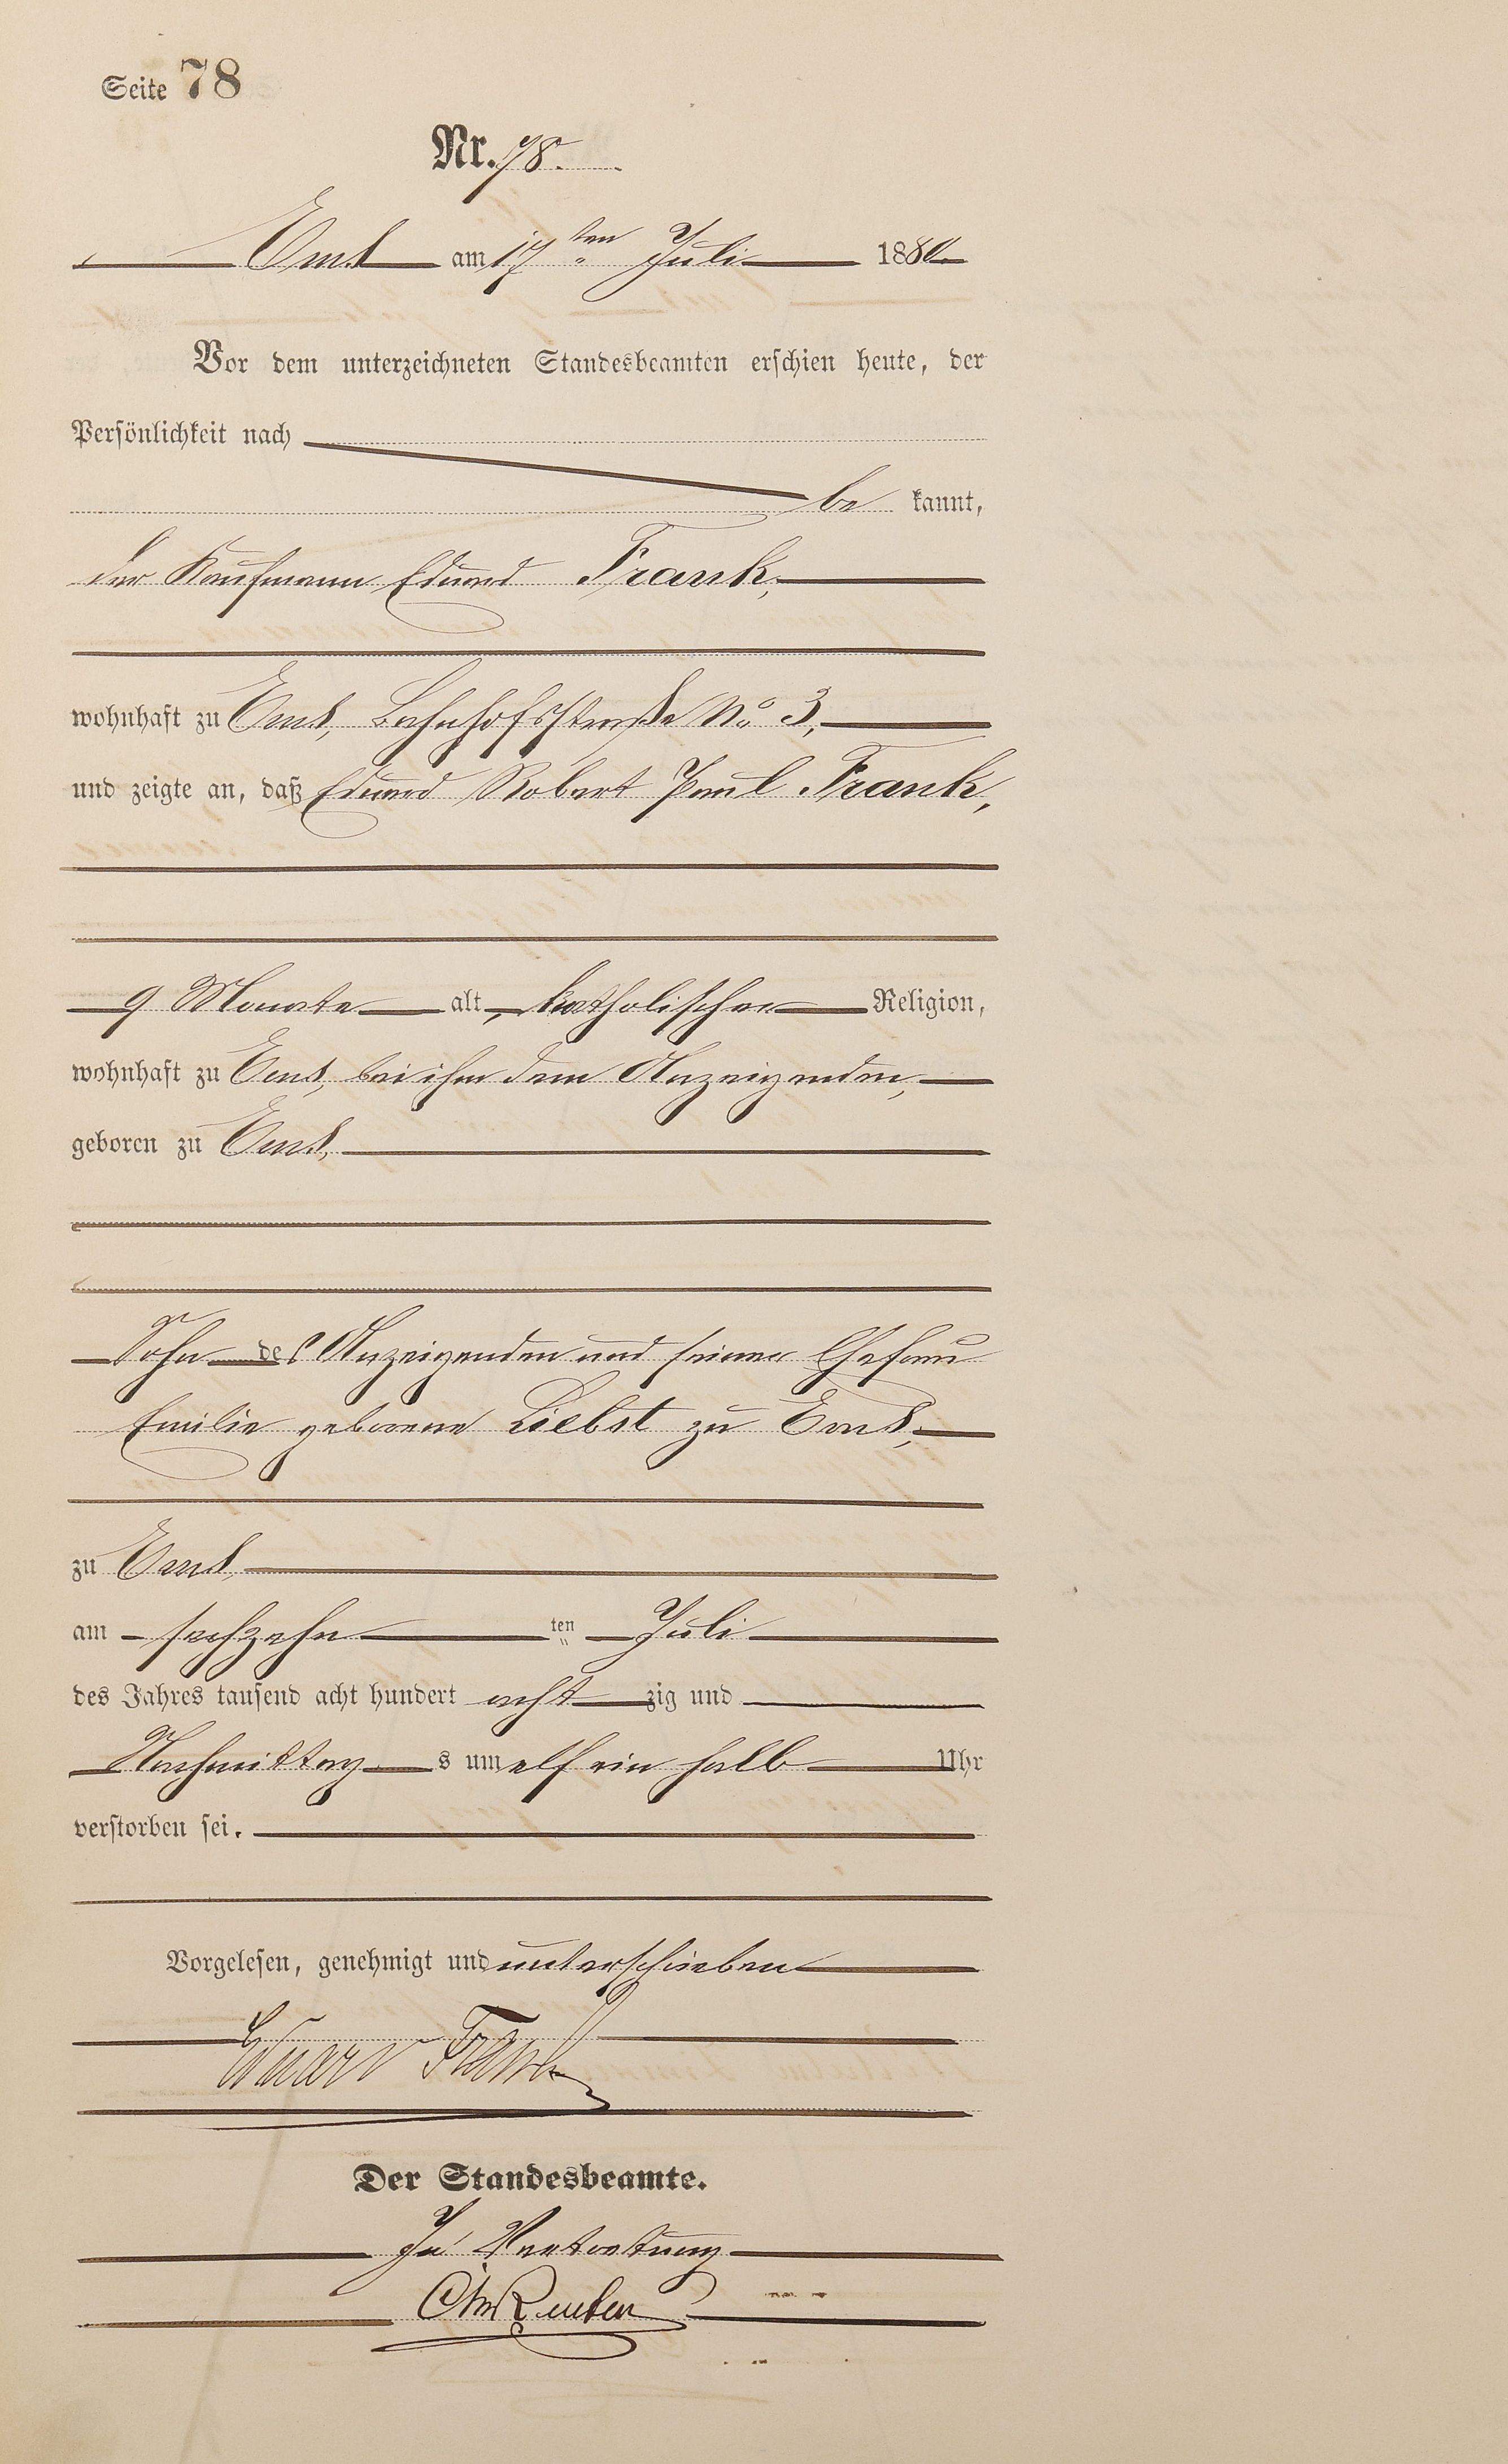 Seite 78
Nr. 78.
Ems am 17ten Juli 1880
Vor dem unterzeichneten Standesbeamten erschien heute, der
Persönlichkeit nach
be kannt,
der Kaufmann Eduard Frank,
wohnhaft zu Ems, Bahnhofsstraße No 3,
und zeigte an, daß Eduard Robert Paul Frank,
9 Monate alt, katholischer Religion,
wohnhaft zu Ems, bei ihm dem Anzeigenden,
geboren zu Ems,
Sohn des Anzeigenden und seiner Ehefrau
Emilie geborene Liebst zu Ems,
zu Ems,
am sechzehn ten Juli
des Jahres tausend acht hundert acht zig und
Nachmittag s um elf ein halb Uhr
verstorben sei.
Vorgelesen, genehmigt und unterschrieben
Eduard Frank
Der Standesbeamte.
In Vertretung